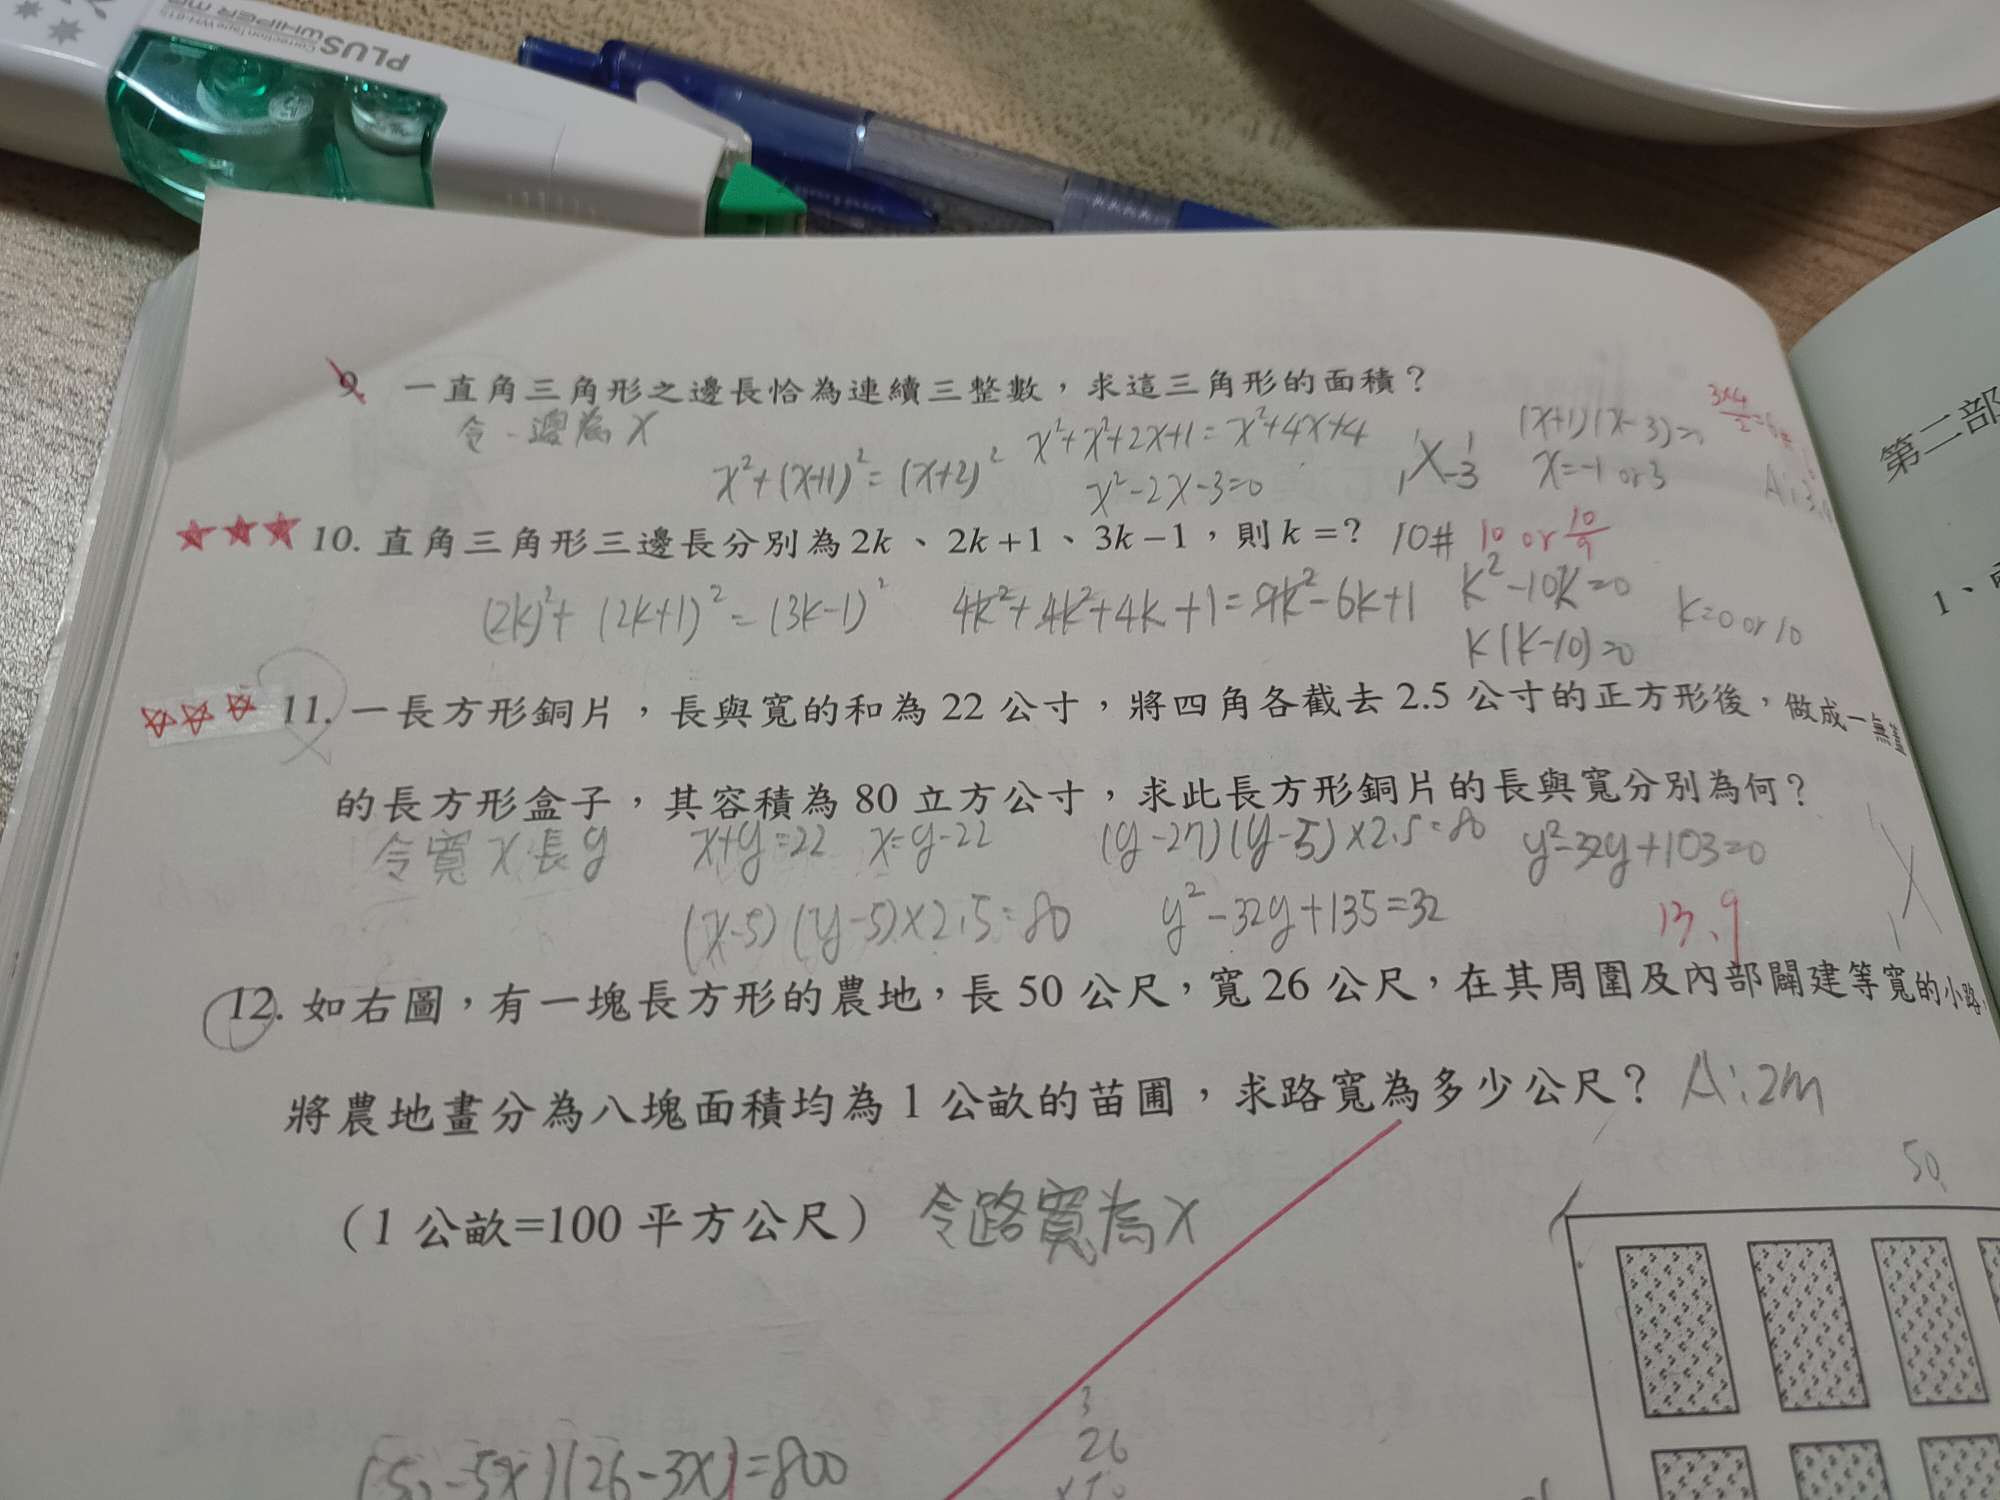 PLUS WHIPER
Correction Tape
9. 一直角三角形之邊長恰為連續三整數，求這三角形的面積？
令一邊為x
x²+(x+1)²=(x+2)²
x²+x²+2x+1=x²+4x+4
x²-2x-3=0
(x+1)(x-3)=0
x=-1 or 3
10. 直角三角形三邊長分別為2k、2k+1、3k-1，則k=? 10# 10 or 10/9
(2k)²+(2k+1)²=(3k-1)² 4k²+4k²+4k+1=9k²-6k+1 k²-10k=0
k(k-10)=0 k=0 or 10
11. 一長方形銅片，長與寬的和為22公寸，將四角各截去2.5公寸的正方形後，做成一無蓋
的長方形盒子，其容積為80立方公寸，求此長方形銅片的長與寬分別為何？
令寬x長y x+y=22 x=y-22 (y-27)(y-5)×2.5=80 y²-32y+103=0
(x-5)(y-5)×2.5=80 y²-32y+135=32 13、9
12. 如右圖，有一塊長方形的農地，長50公尺，寬26公尺，在其周圍及內部闢建等寬的小路，
將農地畫分為八塊面積均為1公畝的苗圃，求路寬為多少公尺？ A:2m
（1公畝=100平方公尺） 令路寬為x
50
(50-5x)(26-3x)=800
3
26
第二部
1、